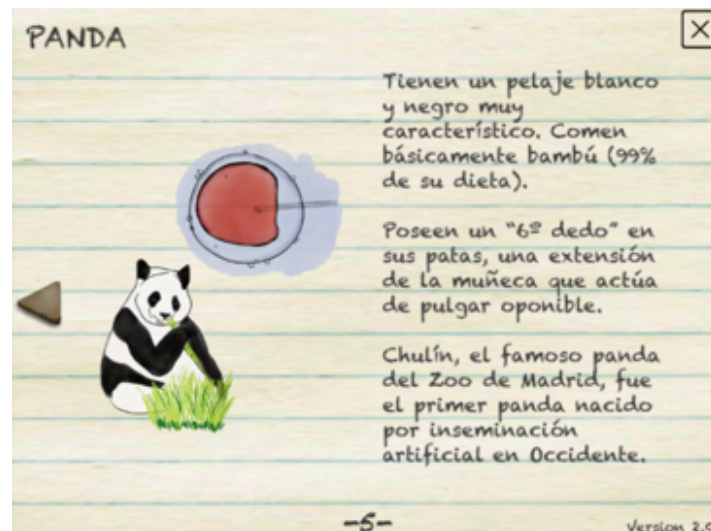 PANDA
Tienen un pelaje blanco
y negro muy
característico. Comen
básicamente bambú (99%
de su dieta).
Poseen un "6º dedo" en
sus patas, una extensión
de la muñeca que actúa
de pulgar oponible.
Chulín, el famoso panda
del Zoo de Madrid, fue
el primer panda nacido
por inseminación
artificial en Occidente.
-5-
Version